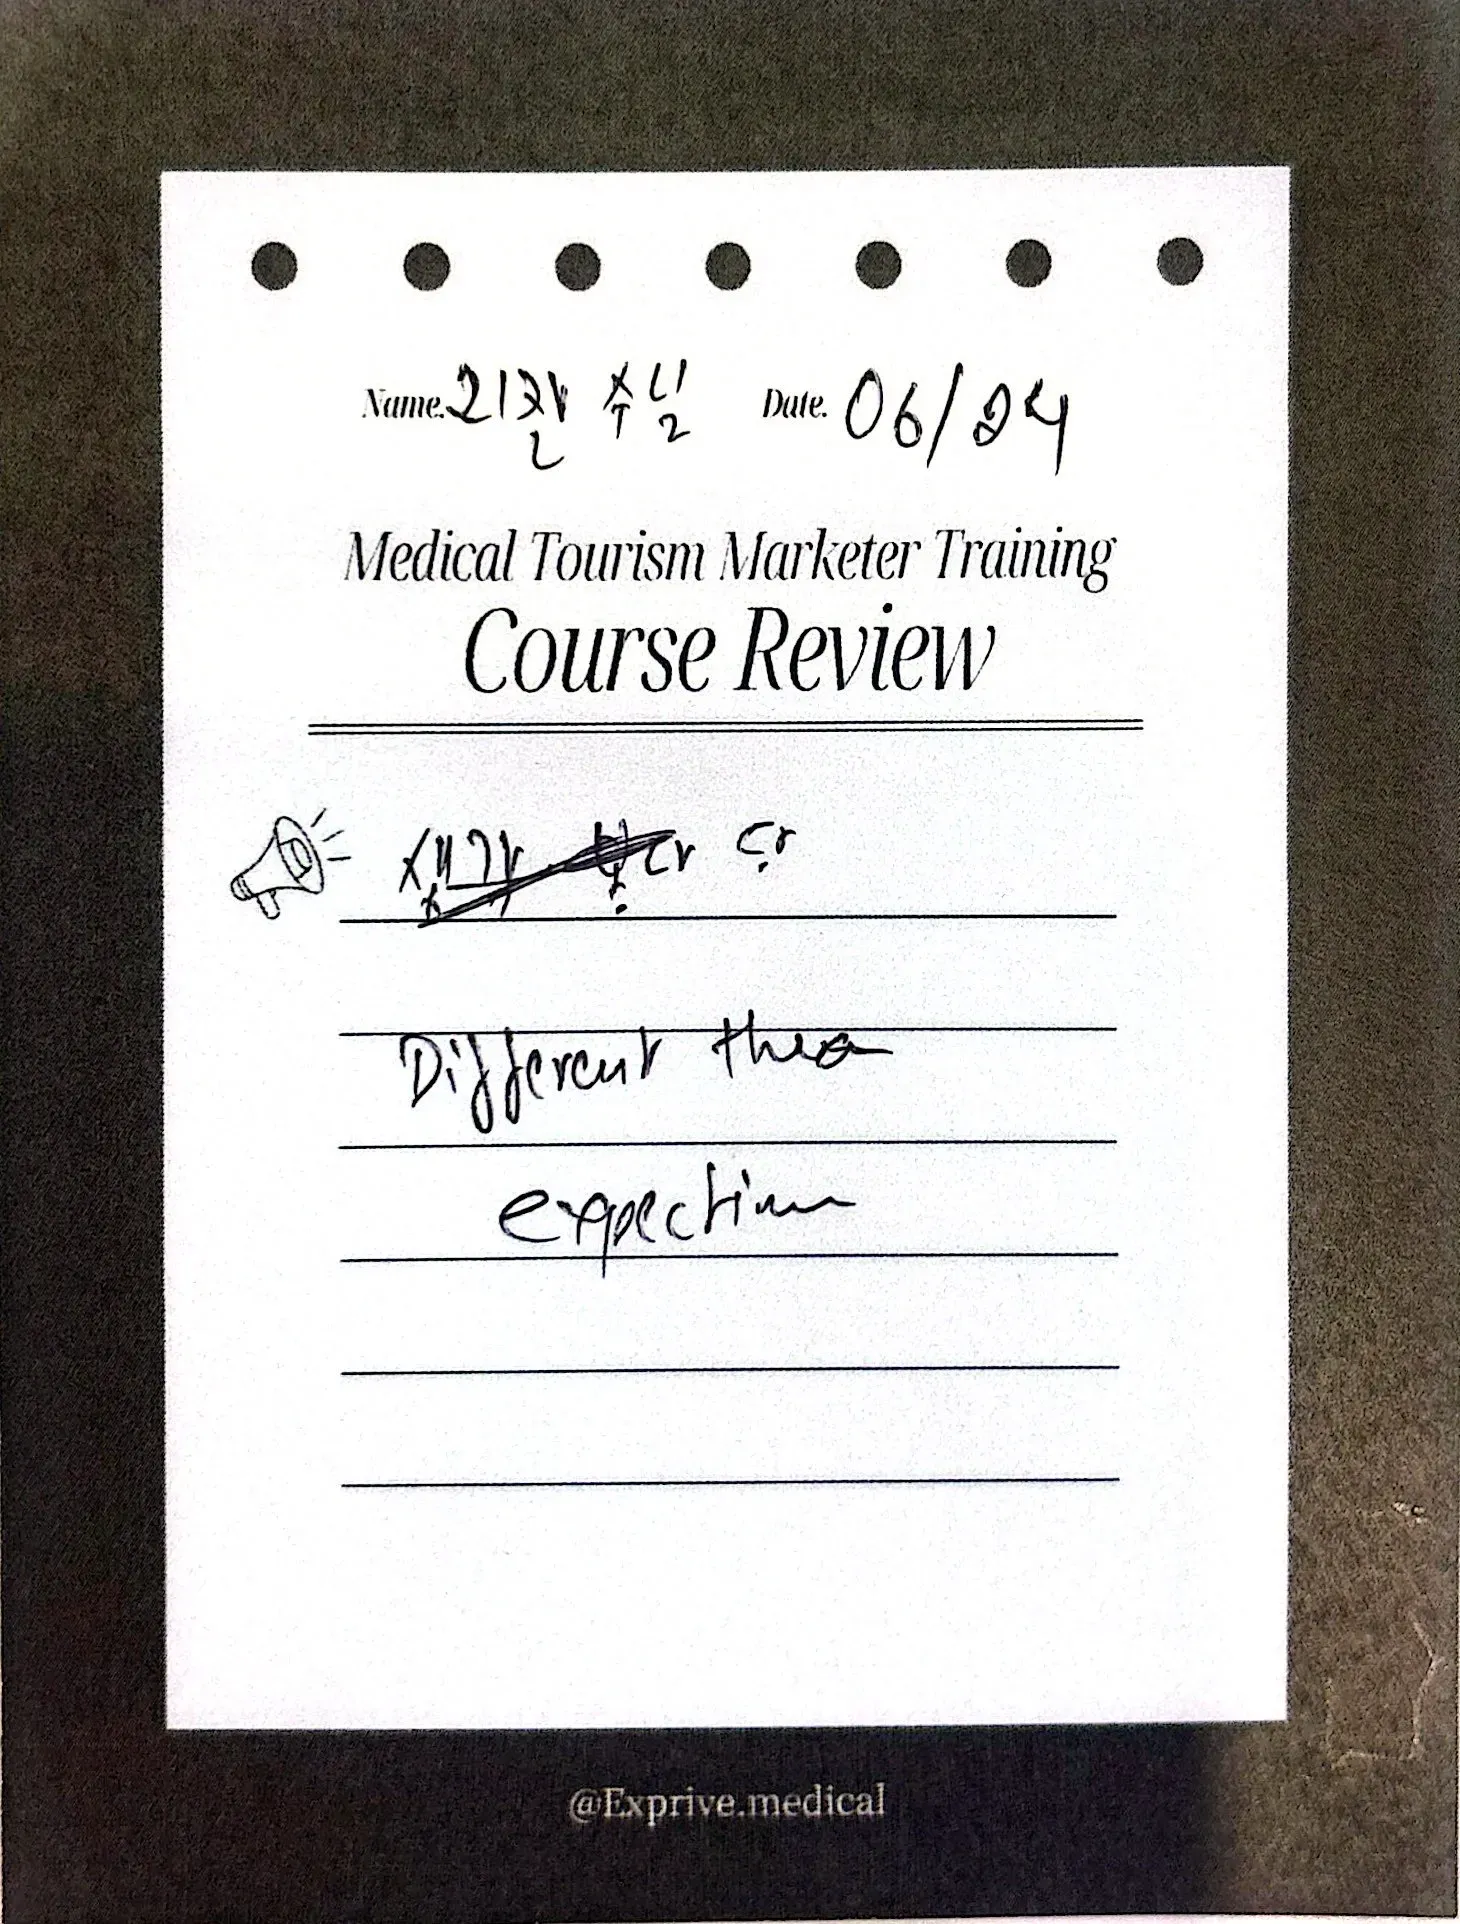 Name. 리잔 수닐 Date. 06/24
Medical Tourism Marketer Training
Course Review
Different than
expection
@Exprive.medical